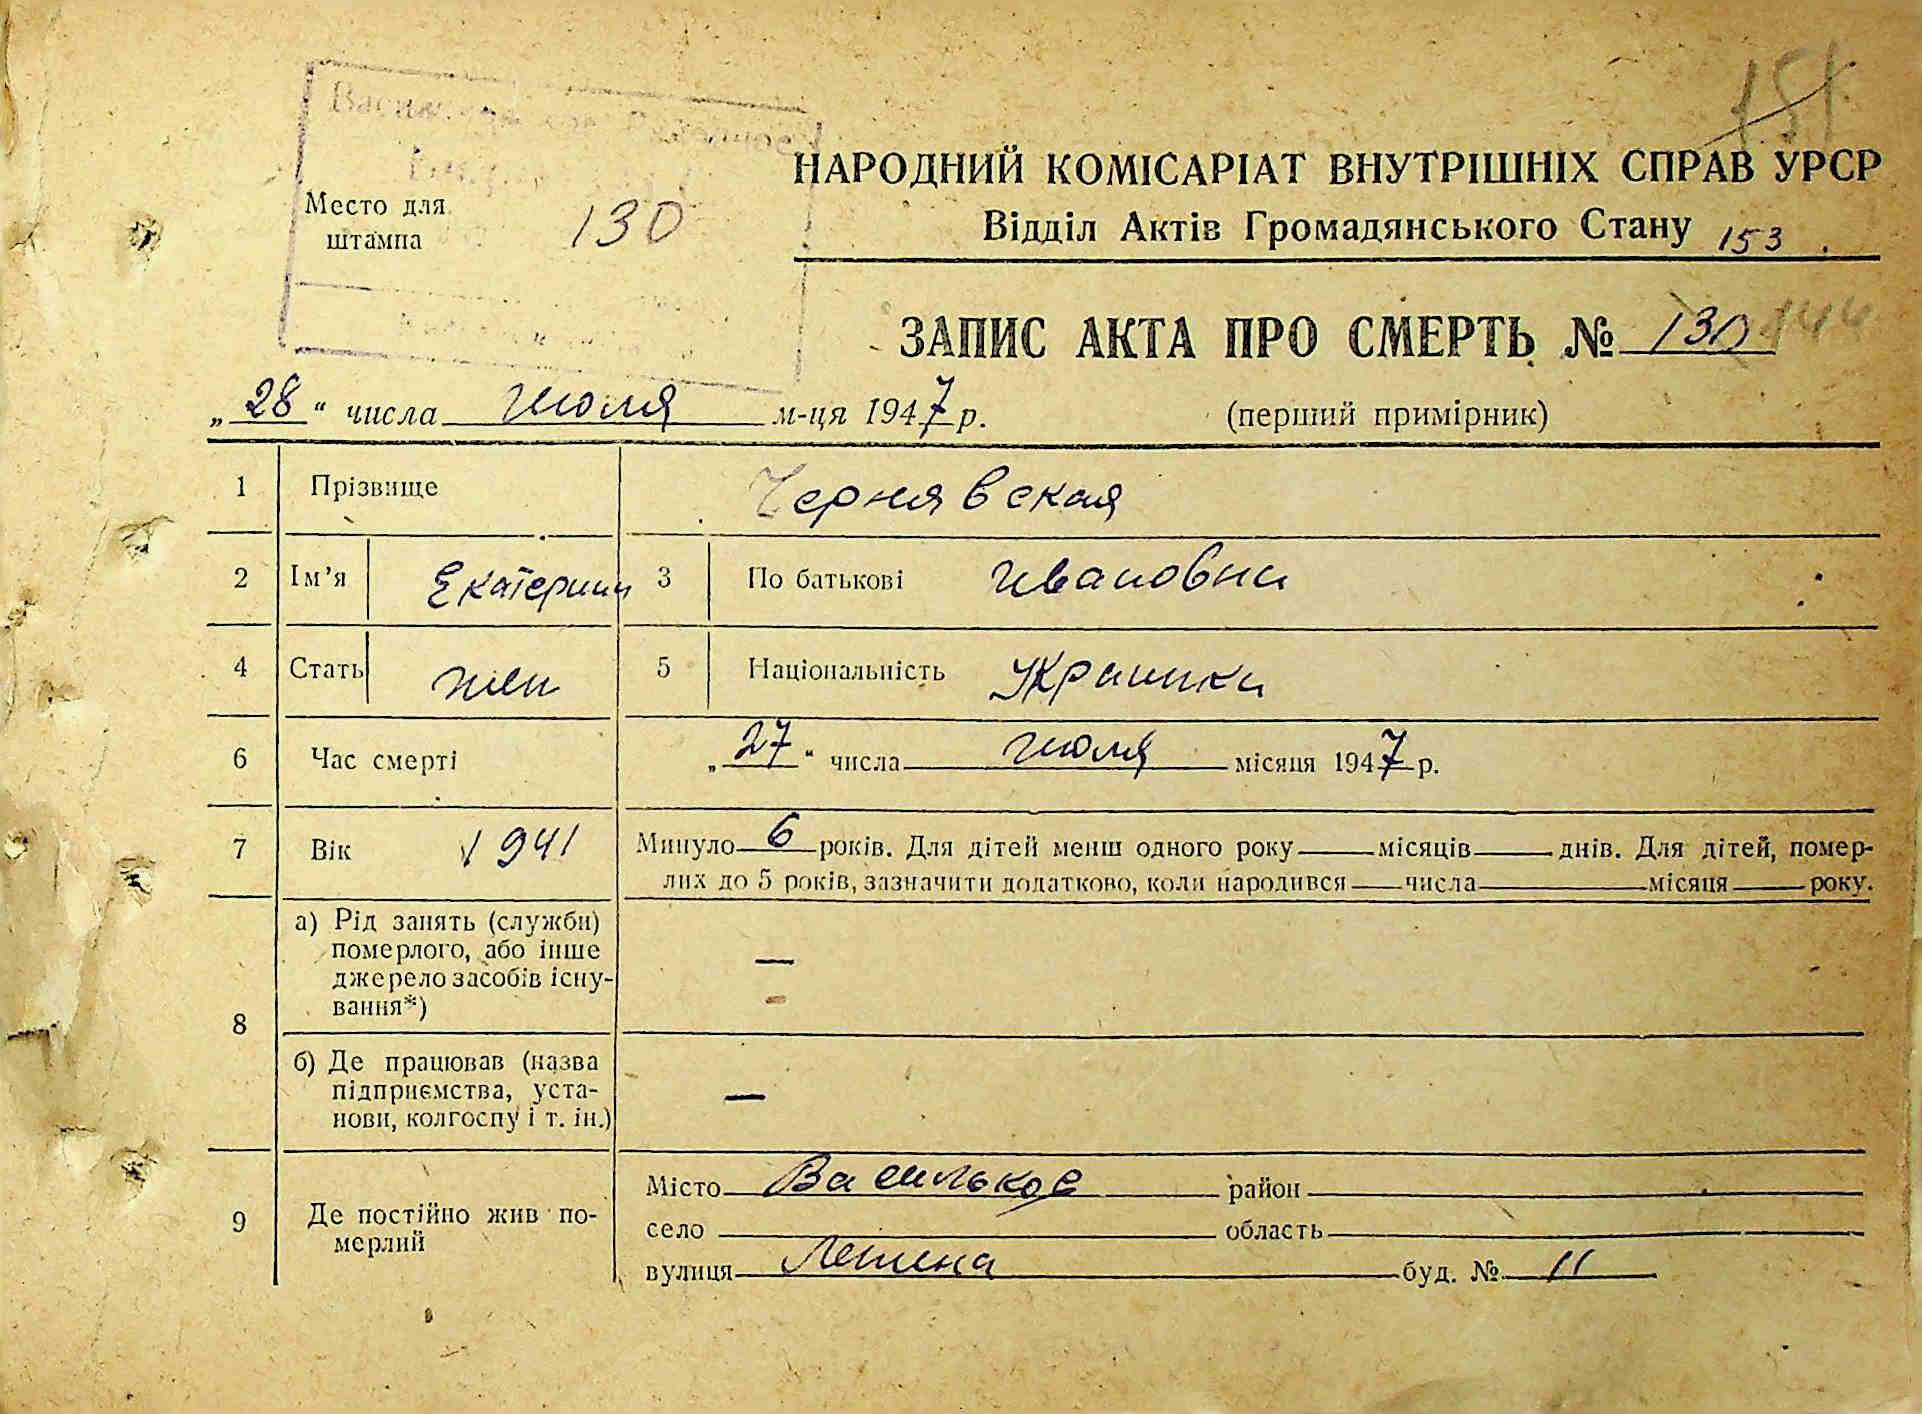 151
НАРОДНИЙ КОМІСАРІАТ ВНУТРІШНІХ СПРАВ УРСР
Відділ Актів Громадянського Стану 153
Место для
штампа
130
ЗАПИС АКТА ПРО СМЕРТЬ № 130 144
„28“ числа июля м-ця 1947 р. (перший примірник)
1 Прізвище Чернявская
2 Ім’я Екатерина 3 По батькові Ивановна
4 Стать жен 5 Національність Украинка
6 Час смерті „27“ числа июля місяця 1947 р.
7 Вік 1941 Минуло 6 років. Для дітей менш одного року місяців днів. Для дітей, помер-
лих до 5 років, зазначити додатково, коли народився числа місяця року.
8 а) Рід занять (служби)
померлого, або інше
джерело засобів існу-
вання*) —
б) Де працював (назва
підприємства, уста-
нови, колгоспу і т. ін.) —
9 Де постійно жив по-
мерлий
Місто Васильков район
село область
вулиця Ленина буд. № 11